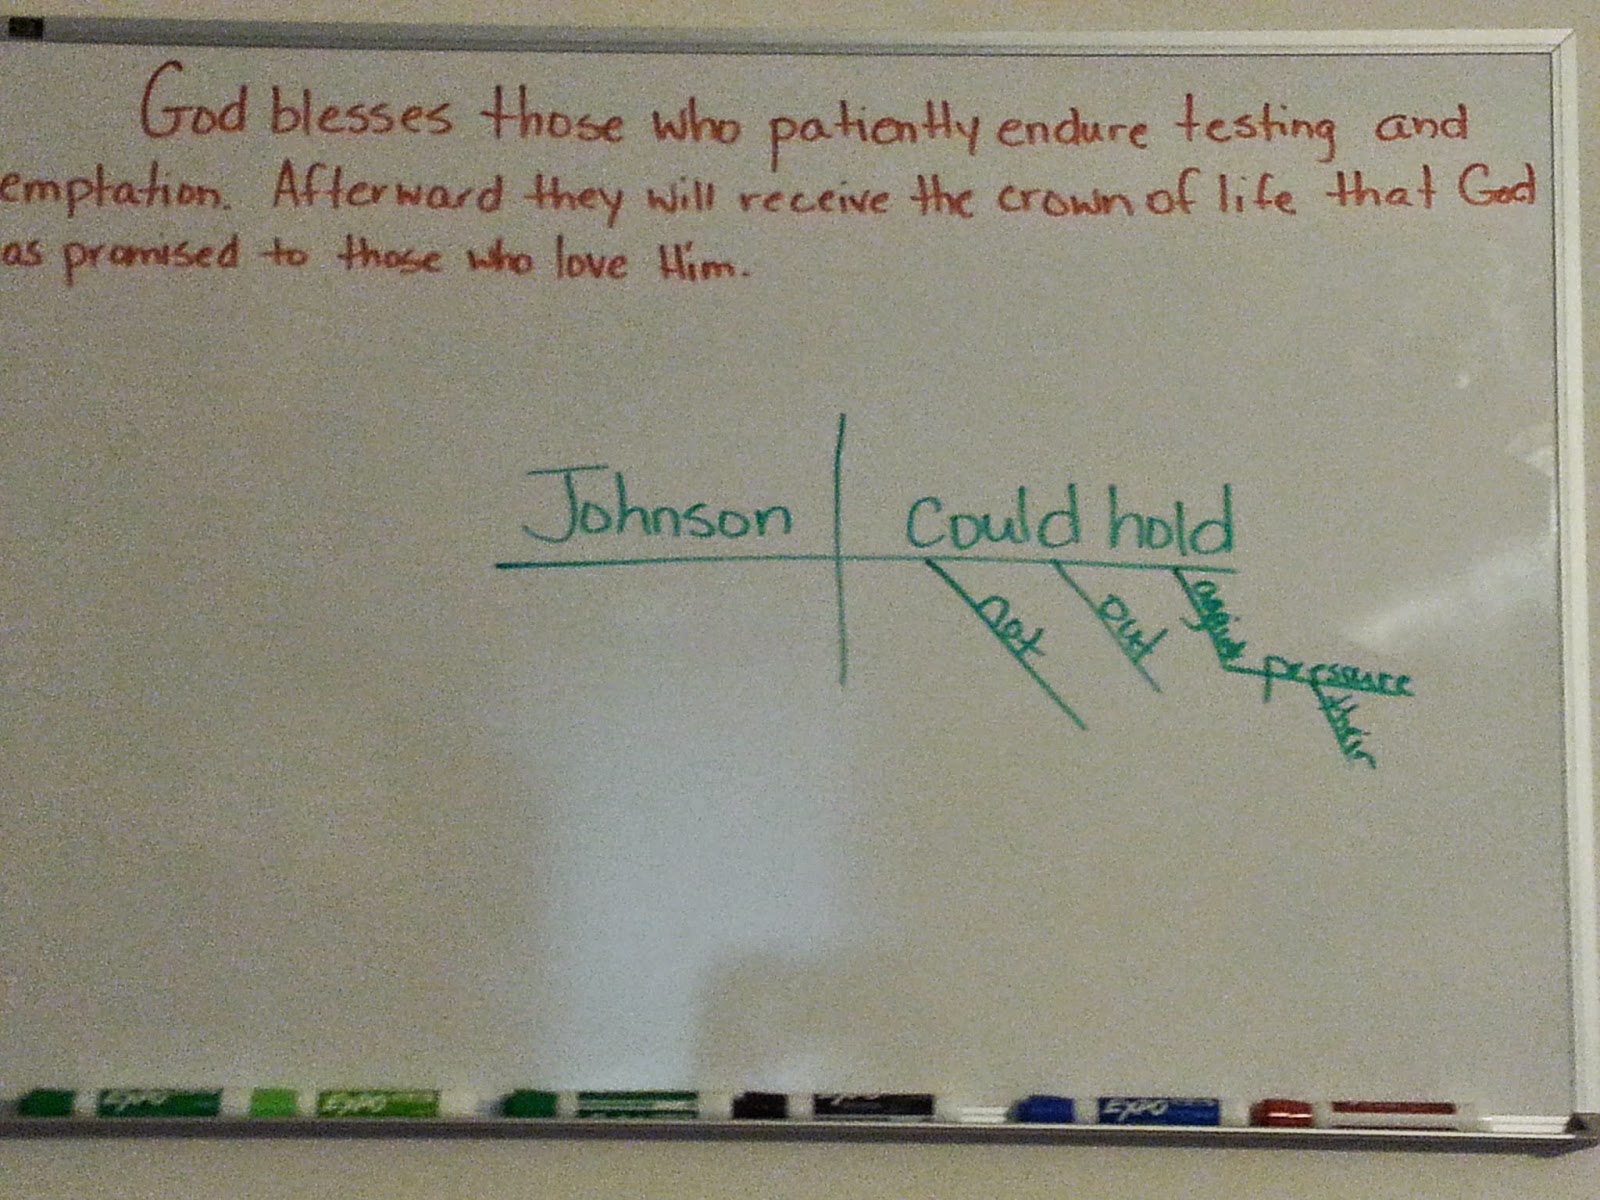 God blesses those who patiently endure testing and
emptation. Afterward they will receive the crown of life that God
as promised to those who love Him.
Johnson could hold
not
out
pressure
their
Expo
Expo
Expo
Expo